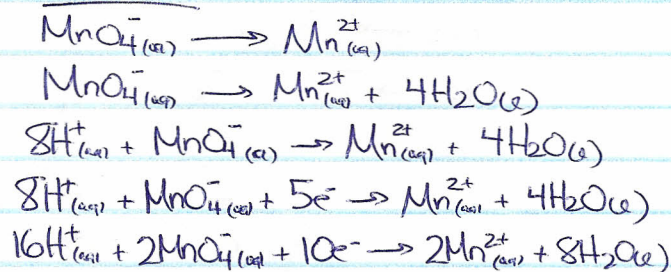 MnO₄⁻(aq) → Mn²⁺(aq)
MnO₄⁻(aq) → Mn²⁺(aq) + 4H₂O(l)
8H⁺(aq) + MnO₄⁻(aq) → Mn²⁺(aq) + 4H₂O(l)
8H⁺(aq) + MnO₄⁻(aq) + 5e⁻ → Mn²⁺(aq) + 4H₂O(l)
16H⁺(aq) + 2MnO₄⁻(aq) + 10e⁻ → 2Mn²⁺(aq) + 8H₂O(l)